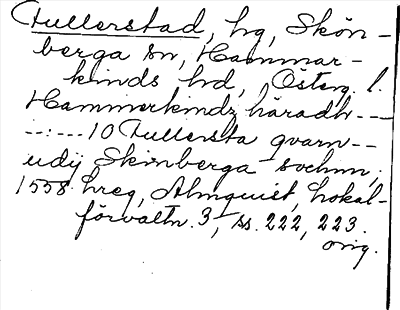 Fullerstad, hg, Skön-
berga sn, Hammar-
kinds hd, Österg. l.
Hammerkindz häradh ---
--:--- 10 Fullersta qvarn --
udij Skinberga sochnn,
1558. hreg, Almquist, Lokal-
förvaltn. 3, ss. 222, 223.
orig.